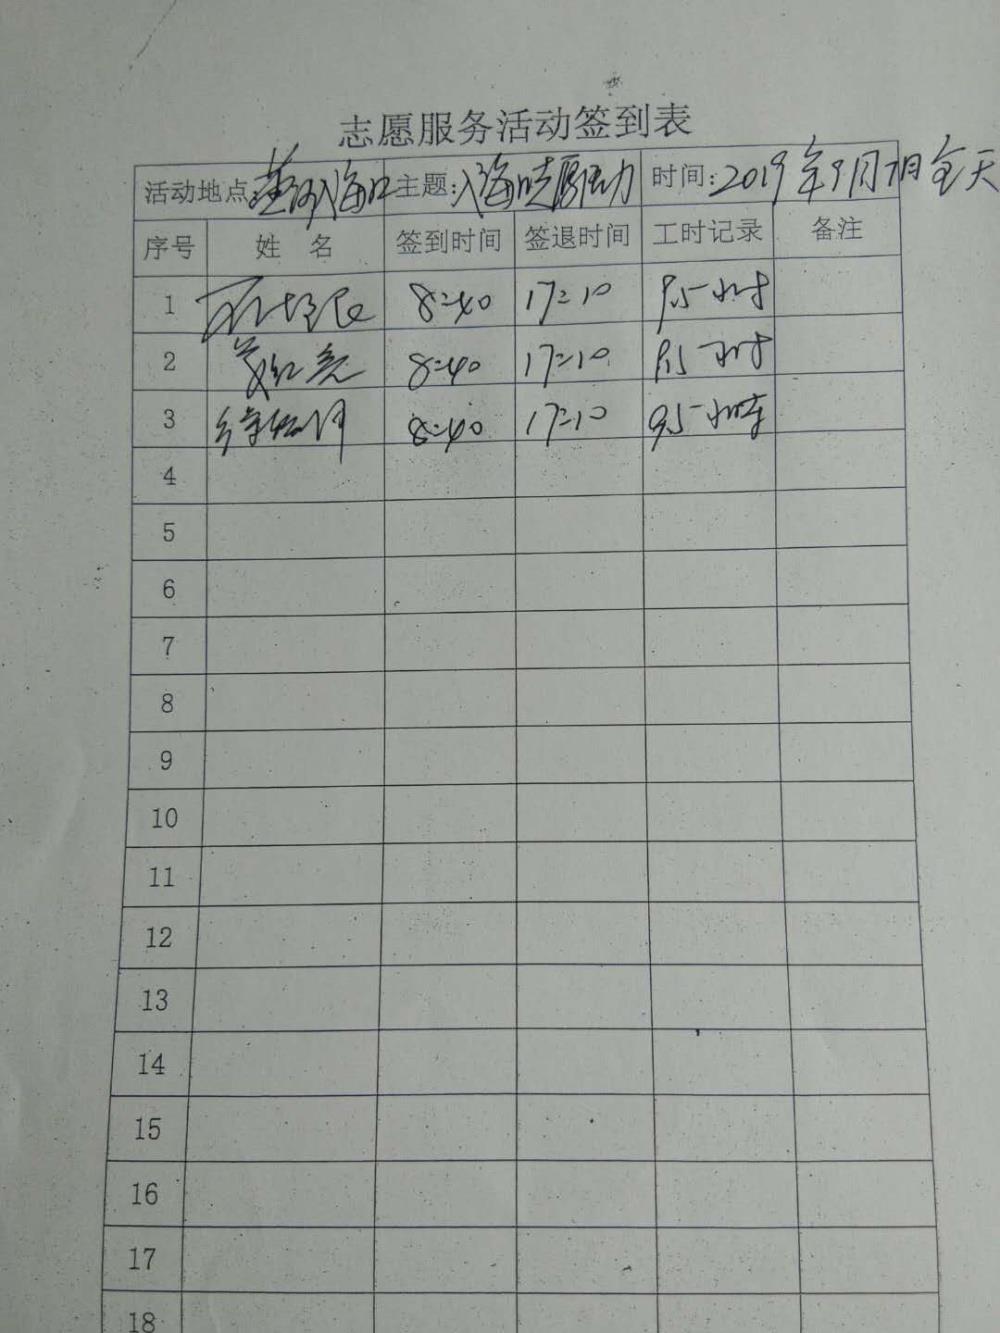 志愿服务活动签到表
活动地点 黄河入海口 主题: 入海口志愿活动 时间: 2019年9月7日全天
序号 姓名 签到时间 签退时间 工时记录 备注
1 8:40 17:10 9.5小时
2 8:40 17:10 9.5小时
3 8:40 17:10 9.5小时
4
5
6
7
8
9
10
11
12
13
14
15
16
17
18